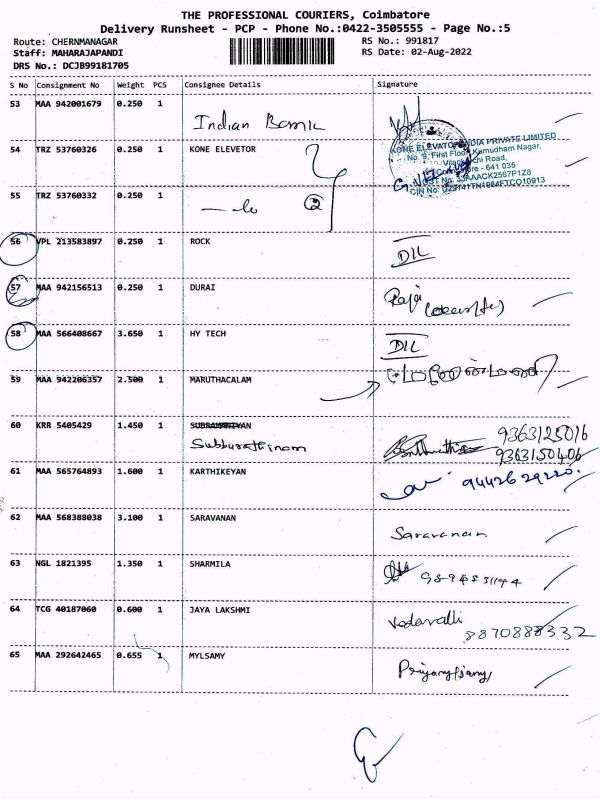 THE PROFESSIONAL COURIERS, Coimbatore
Delivery Runsheet - PCP - Phone No.:0422-3505555 - Page No.:5
Route: CHERNMANAGAR RS No.: 991817
Staff: MAHARAJAPANDI RS Date: 02-Aug-2022
DRS No.: DCJB99181705
S No Consignment No Weight PCS Consignee Details Signature
53 MAA 942001679 0.250 1 Indian Bank
54 TRZ 53760326 0.250 1 KONE ELEVETOR
KONE ELEVATOR INDIA PRIVATE LIMITED
No. 9, First Floor, Kumudham Nagar,
Road,
Coimbatore - 641 035
55 TRZ 53760332 0.250 1 2
56 VPL 213583897 0.250 1 ROCK DIL
57 MAA 942156513 0.250 1 DURAI Raja
58 MAA 566408667 3.650 1 HY TECH DIL
59 MAA 942206357 2.500 1 MARUTHACALAM
60 KRR 5405429 1.450 1 Subburathinam 9363125016
9363150406
61 MAA 565764893 1.600 1 KARTHIKEYAN 9442629220
62 MAA 568388038 3.100 1 SARAVANAN Saravanan
63 NGL 1821395 1.350 1 SHARMILA
64 TCG 40187060 0.600 1 JAYA LAKSHMI Vedavalli
8870888332
65 MAA 292642465 0.655 1 MYLSAMY